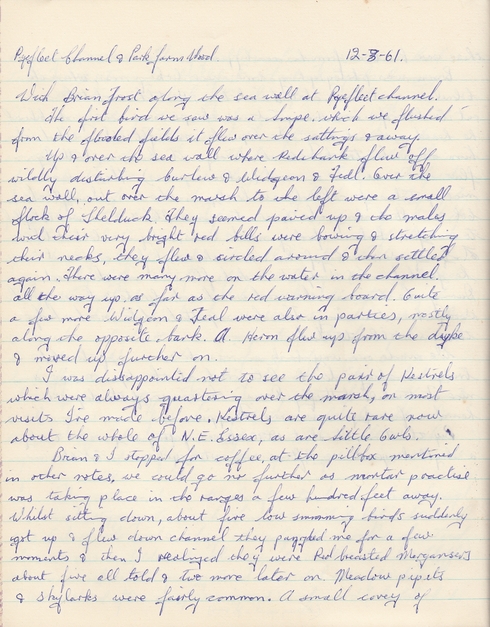 Pyefleet Channel & Park farm Wood 12-3-61.
With Brian Frost along the sea wall at Pyefleet channel.
The first bird we saw was a Snipe, which we flushed
from the flooded fields it flew over the saltings & away.
Up & over the sea wall where Redshank flew off
wildly disturbing Curlew & Widgeon & Teal. Over the
sea wall, out over the marsh to the left were a small
flock of Shelduck. They seemed paired up & the males
with their very bright red bills were bowing & stretching
their necks, they flew & circled around & then settled
again. There were many more on the water in the channel,
all the way up, as far as the red warning board. Quite
a few more Widgeon & Teal were also in parties, mostly
along the opposite bank. A Heron flew up from the dyke
& moved up further on.
I was disappointed not to see the pair of Kestrels
which were always quartering over the marsh, on most
visits I've made before. Kestrels are quite rare now
about the whole of N.E. Essex, as are little Owls.
Brian & I stopped for coffee, at the pillbox mentioned
in other notes, we could go no further as mortar practise
was taking place in the ranges a few hundred feet away.
Whilst sitting down, about five low swimming birds suddenly
got up & flew down channel they puzzled me for a few
moments & then I realized they were Red breasted Mergansers
about five all told & two more later on. Meadow pipits
& Skylarks were fairly common. A small covey of